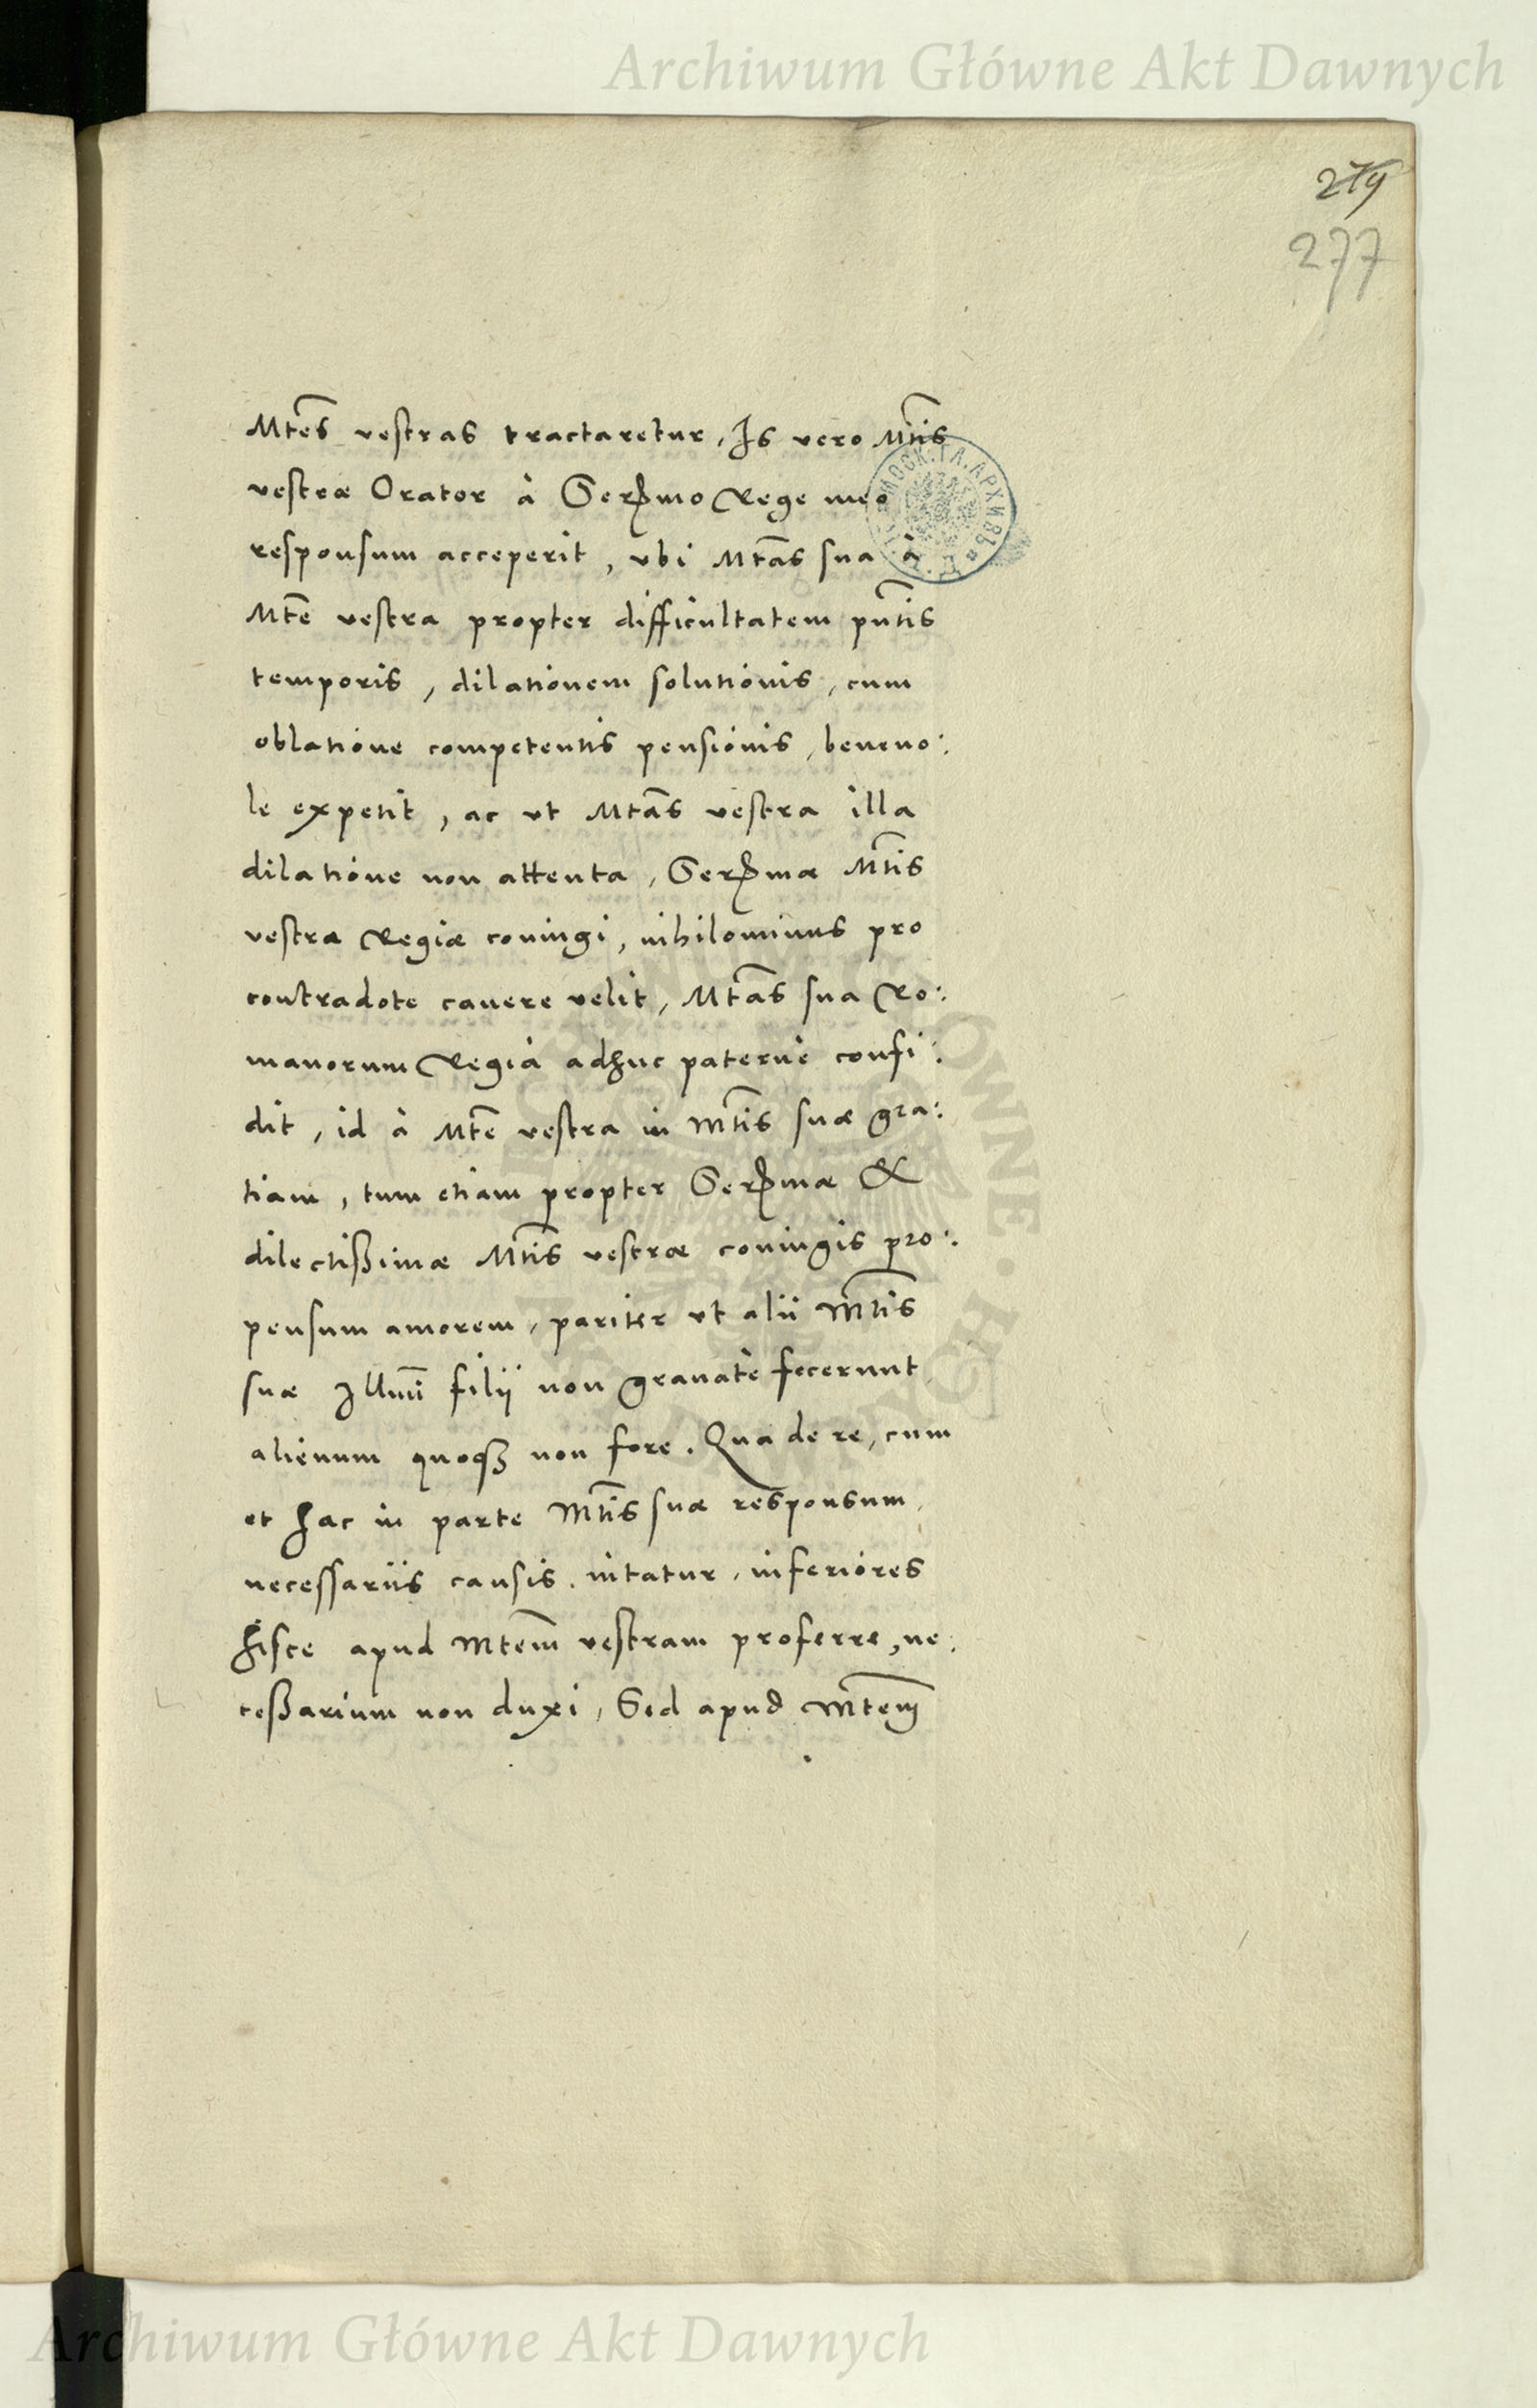 Archiwum Główne Akt Dawnych
279
277
Mtes vestras tractaretur, Is vero Mtis
vestræ Orator à Serßmo Rege meo
responsum acceperit, ubi Mtas sua à
Mte vestra propter difficultatem pntis
temporis, dilationem solutionis, cum
oblatione competentis pensionis, benevo:
le expetit, ac ut Mtas vestra illa
dilatione non attenta, Serßmæ Mtis
vestræ Regiæ coniugi, nihilominus pro
contradote cavere velit, Mtas sua Ro:
manorum Regia adhuc paternè confi:
dit, id à Mte vestra in Mtis suæ gra:
tiam, tum etiam propter Serßmæ &
dilectißimæ Mtis vestræ coniugis pro:
pensum amorem, pariter ut alii Mtis
suæ Illmi filij non gravatè fecerunt,
alienum quoqȝ non fore. Qua de re, cum
et hac in parte Mtis suæ responsum,
necessariis causis nitatur, inferiores
hisce apud Mtem vestram proferre, ne:
ceßarium non duxi, Sed apud Mtem
МОСК. ГЛ. АРХИВЪ
Archiwum Główne Akt Dawnych